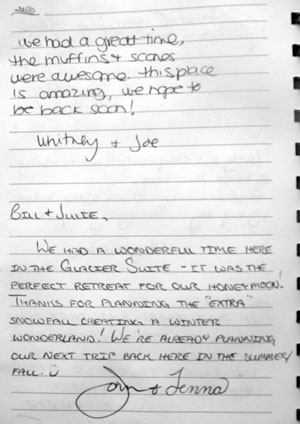 We had a great time,
the muffins + scones
were awesome. this place
is amazing, we hope to
be back soon!
Whitney + Joe
Bill + Julie,
We had a wonderful time here
in the Glacier Suite - it was the
perfect retreat for our honeymoon!
Thanks for planning the "extra"
snowfall creating a winter
wonderland! We're already planning
our next trip back here in the summer/
fall. :)
John + Jenna